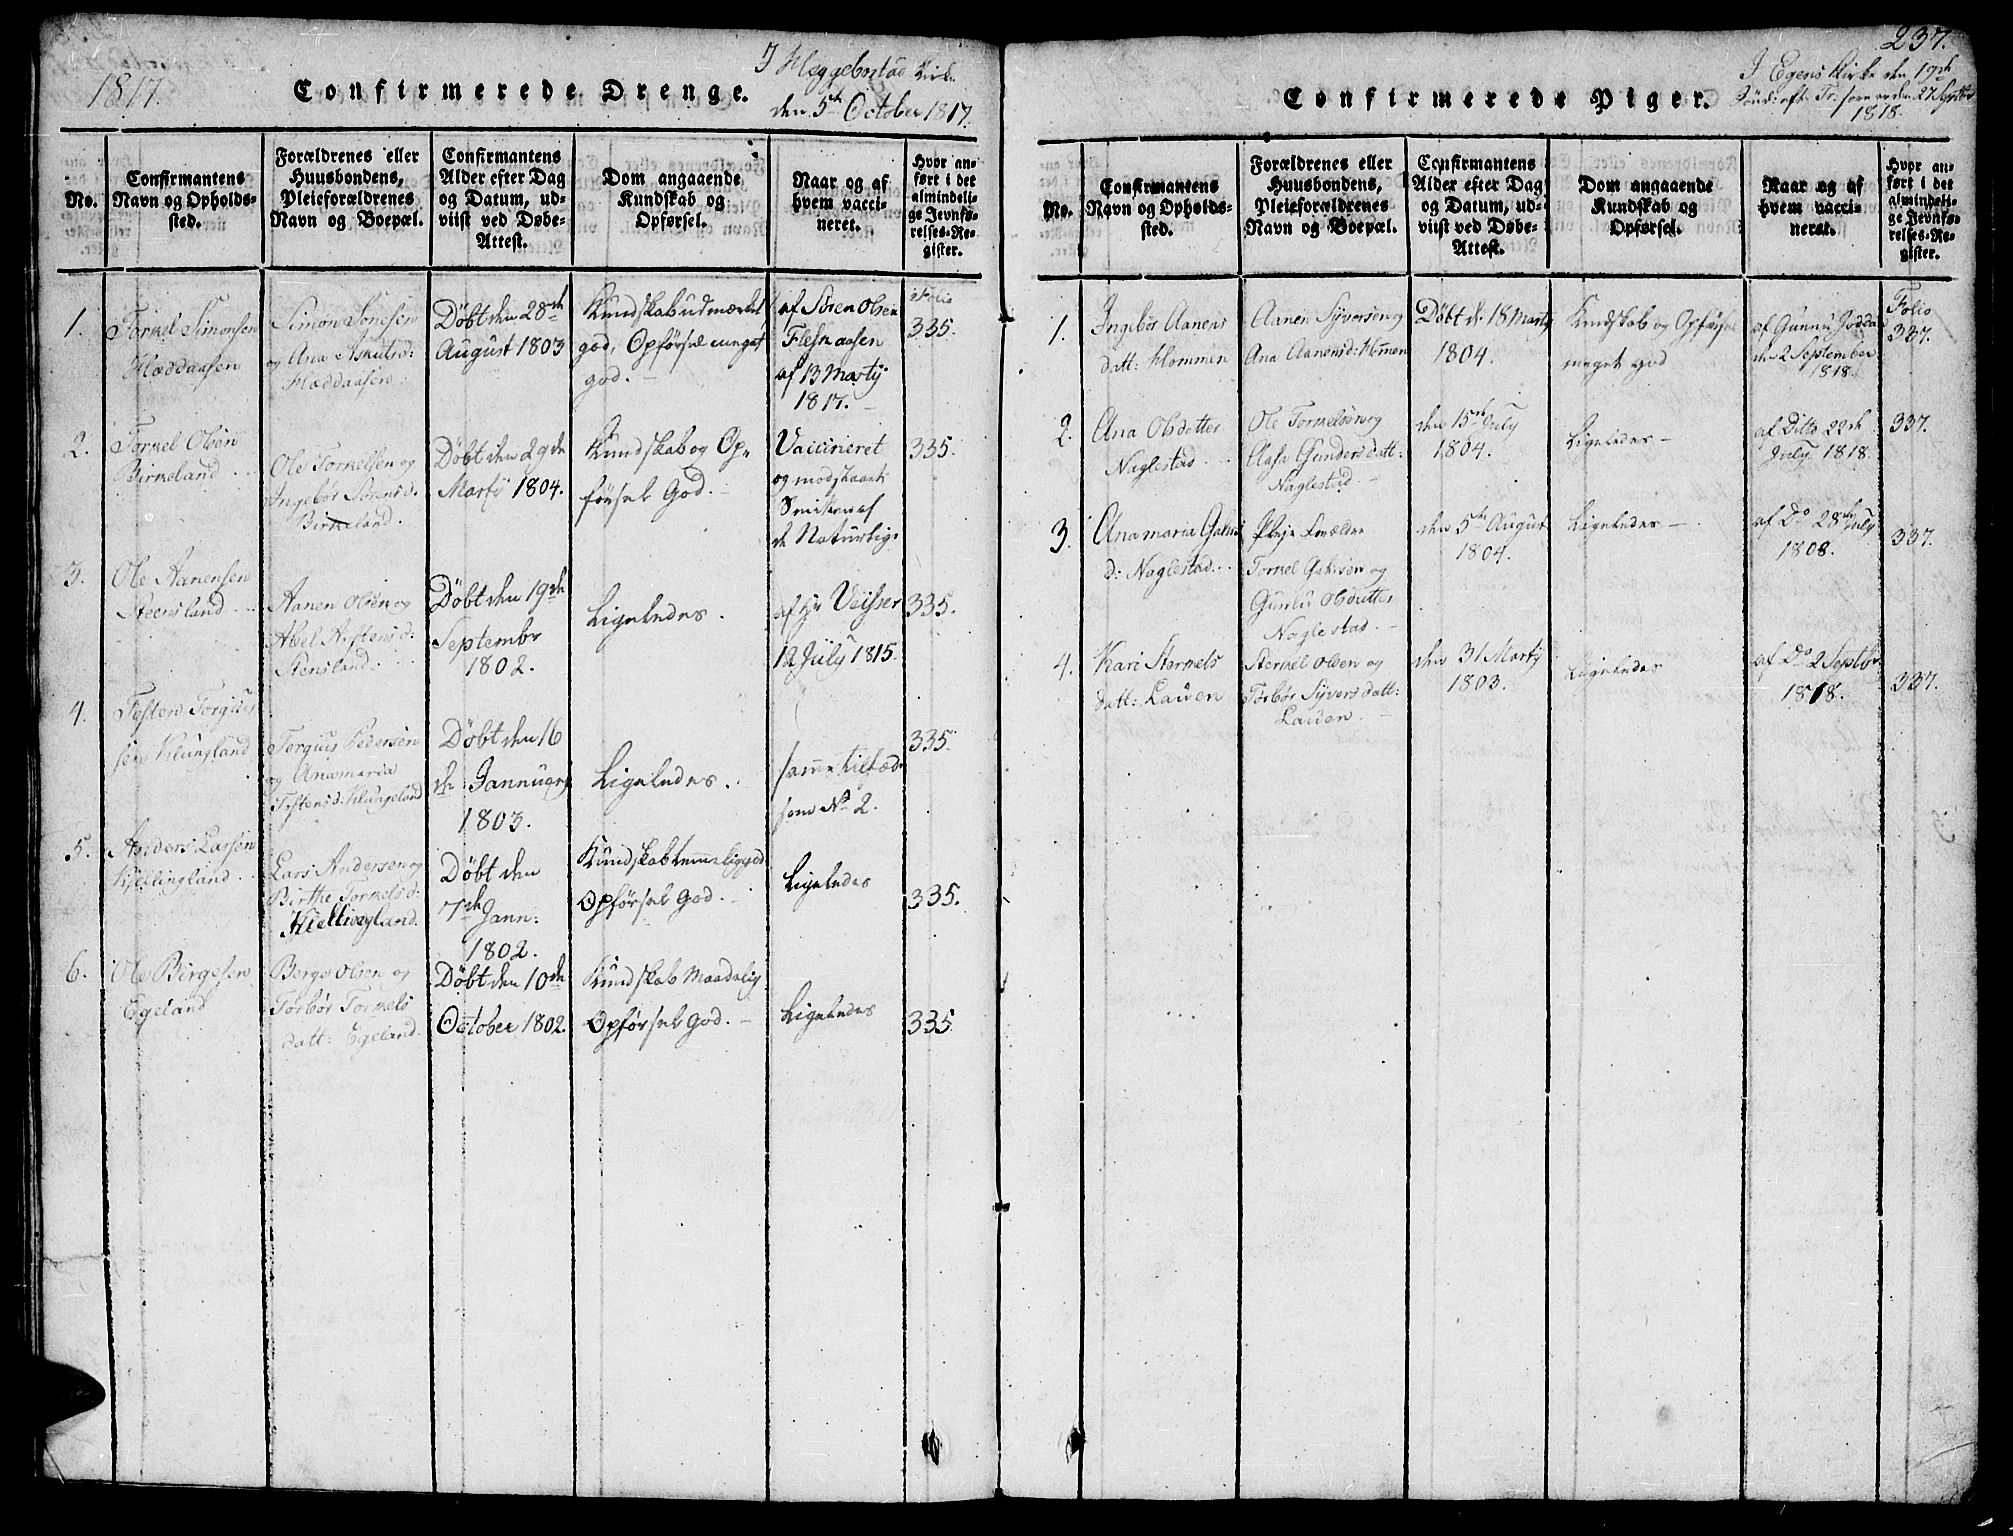 1817.
Confirmerede Drenge.
I Heggebostad Kirke
den 5te October 1817.
No.
Confirmantens
Navn og Opholds-
sted.
Forældrenes eller
Huusbondens,
Pleieforældrenes
Navn og Boepæl.
Confirmantens
Alder efter Dag
og Datum, ud-
viist ved Døbe-
Attest.
Dom angaaende
Kundskab og
Opførsel.
Naar og af
hvem vacci-
neret.
Hvor an-
ført i det
almindeli-
ge Jevnfø-
relses-Re-
gister.
1.
Tormel Simonsen
Hæddaasen
Simon Tønesen
og Ana Askulsd:
Hæddaasen.
Døbt den 28de
August 1803
Kundskab udmærket
god, Opførsel meget
god. –
af Søren Olsen
Flesmaasen
af 13 Martÿ
1817. –
Folio
335.
2.
Tormel Olsen
Birkeland
Ole Tormelsen og
Ingebor Sørensd.
Birkeland.
Døbt den 29de
Martÿ 1804.
Kundskab og Op„
førsel God. –
Vaccineret
og modstaaet
Smitten af
de Naturlig:
335.
3.
Ole Aanensen
Steensland
Aanen Olsen og
Abel
Stensland.
Døbt den 19de
September
1802.
Ligeledes.
af Hr
12 July 1815.
335.
4.
Testen Torgius
sen Klungland
Torgius Pedersen
og Anamaria
Testensd: Klungeland
Døbt den 16
de Jannuarÿ
1803.
Ligeledes.
samme tilfæde
som No 2.
335.
5.
Anders Larsen
Kiellingland.
Lars Andersen og
Birthe Tormelsd:
Kiellingland.
Døbt den
7de Jann:
1802.
Kundskab temmelig god
Opførsel God. –
Ligeledes
335.
6.
Ole Birgesen
Egeland
Berge Olsen og
Torbør Tormels
datt: Egeland.
Døbt den 10de
October 1802.
Kundskab Maadelig
Opførsel God. –
Ligeledes
335
237.
Confirmerede Piger.
I Egens Kirke den 19de
Sønd: eft. Tr: som er den 27 Septbr
1818.
No.
Confirmantens
Navn og Opholds-
sted.
Forældrenes eller
Huusbondens,
Pleieforældrenes
Navn og Boepæl.
Confirmantens
Alder efter Dag
og Datum, ud-
viist ved Døbe-
Attest.
Dom angaaende
Kundskab og
Opførsel.
Naar og af
hvem vacci-
neret.
Hvor an-
ført i det
almindeli-
ge Jevnfø-
relses-Re-
gister.
1.
Ingebør Aanens
datt: Hommen
Aanen Syversen og
Ana Aanensd: Hommen
Døbt d. 18 Martÿ
1804.
Kundskab og Opførsel
meget god
af Gunnu
den 2 September
1818.
Folio
337.
2.
Ana Olsdatter
Naglestad
Ole Tormelsen og
Aasa Gundersdatt:
Naglestad. –
den 15de July
1804.
Ligeledes –
af Ditto 22de
July 1818.
337.
3.
Anamaria
d: Naglestad.
Pleje Forældre
Tormel og
Gunlu Olsdatter
Naglestad. –
den 5te August
1804.
Ligeledes –
af Do 28de July
1808.
337.
4.
Kari Stermels
datt: Lauen
Stermel Olsen og
Torbør Syversdatt:
Lauen. –
den 31 Martÿ
1803.
Ligeledes
af Do 2 Septbr
1818.
337.